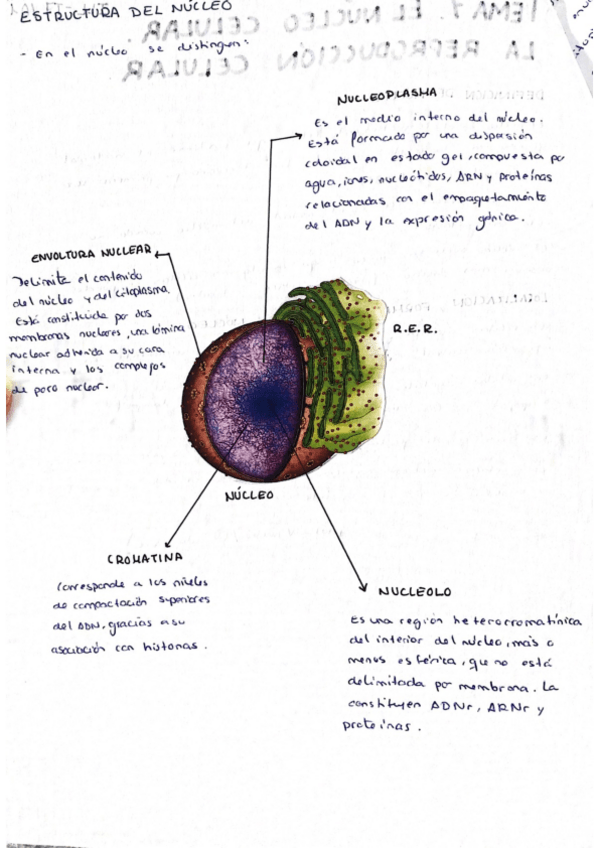 ESTRUCTURA DEL NÚCLEO
- En el núcleo se distinguen:
TEMA 7. EL NUCLEO CELULAR.
LA REPRODUCCIÓN CELULAR
NUCLEOPLASMA
Es el medio interno del núcleo.
Está formado por una dispersión
coloidal en estado gel, compuesta po
agua, iones, nucleótidos, ARN y proteínas
relacionadas con el empaquetamiento
del ADN y la expresión génica.
ENVOLTURA NUCLEAR
Delimita el contenido
del núcleo y del citoplasma.
Está constituida por dos
membranas nucleares, una lámina
nuclear adherida a su cara
interna y los complejos
de poro nuclear.
R.E.R.
NÚCLEO
CROMATINA
Corresponde a los niveles
de compactación superiores
del ADN, gracias a su
asociación con histonas.
NUCLEOLO
Es una región heterocromatínica
del interior del núcleo, más o
menos esférica, que no está
delimitada por membrana. La
constituyen ADNr, ARNr y
proteínas.